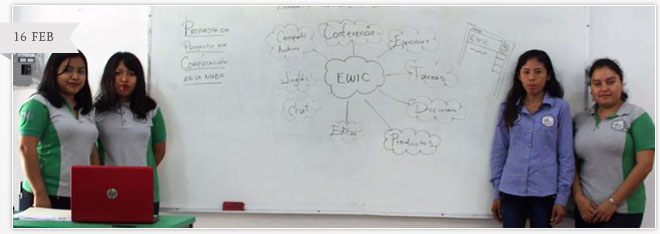 16 FEB
PROPUESTA DE
PROYECTO DE
COMPUTACIÓN
EN LA NUBE
Conferencia
Compartir
Archivos
Ejercicios
EWIC
EWIC
Inglés
Tareas
Chat
Diccionario
Editor
Productos
hp